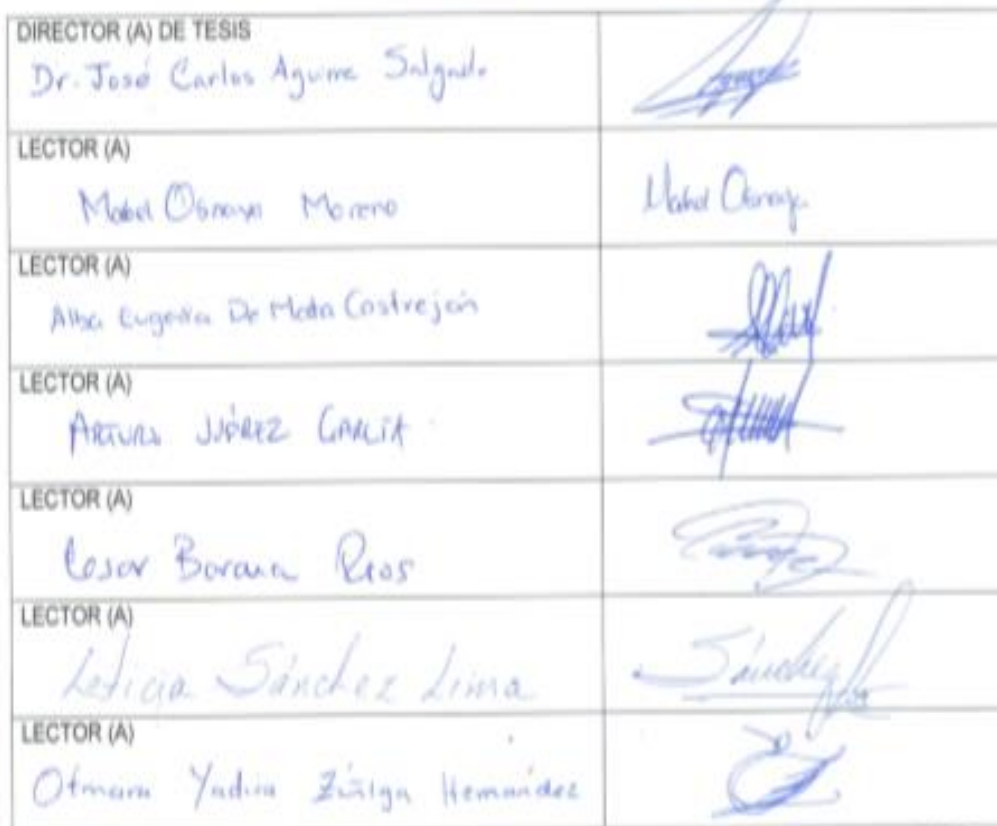 DIRECTOR (A) DE TESIS
Dr. José Carlos Aguirre Salgado
LECTOR (A)
Mabel Osnaya Moreno Mabel Osnaya
LECTOR (A)
Alba Eugenia De Castrejón
LECTOR (A)
ARTURO JUÁREZ GARCÍA
LECTOR (A)
Cesar Rios
LECTOR (A)
Leticia Sánchez Lima Sánchez
LECTOR (A)
Yadira Zúñiga Hernández